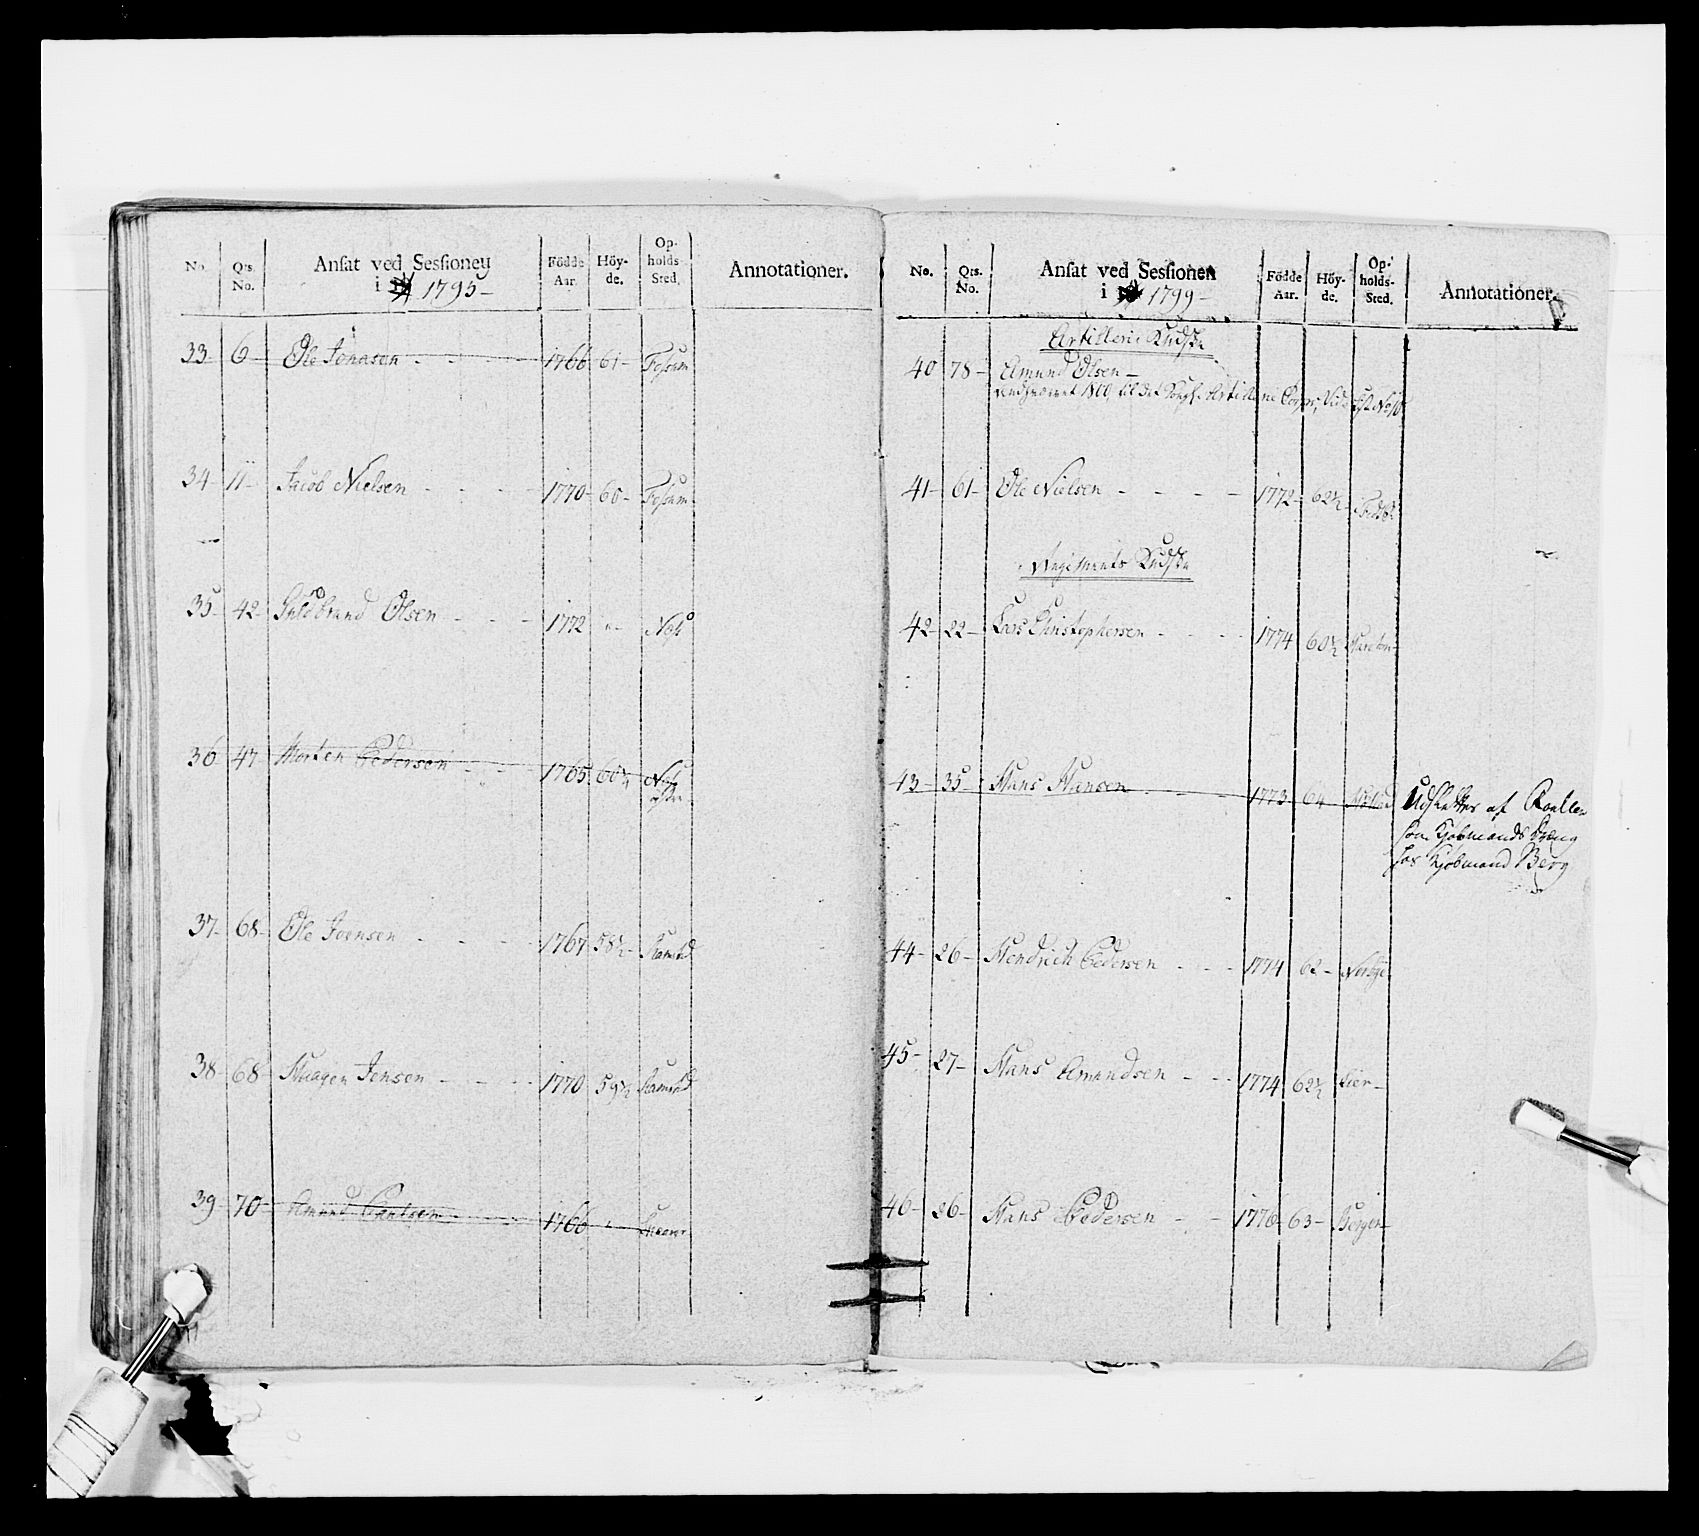 No. Qts. No. Ansat ved Sessionen i 1795 - Födde Aar. Höy- de. Op- holds- Sted. Annotationer.
33 - 6 - Ole Jonasen - - 1766 61 - Fossum
34 - 11 - Jacob Nielsen - - - 1770 - 60 - Fossum
35 - 42 - Guldbrand Olsen - - - 1772 " - Næss
36 47 - Morten Pedersen - - - 1765 60½ Næss
37 - 68 - Ole Joensen - - - 1767 58½ - Ramstad
38 - 68 Haagen Jensen - - - - 1770 59½ Ramstad
39 - 70 - Amund Paulsen - - 1766 "
No. Qts. No. Ansat ved Sessionen i 1799 - Födde Aar. Höy- de. Op- holds- Sted. Annotationer.
Artillerie Kudske
40 78 - Amund Olsen -
1800 til det Artillerie Corps, Vide
41 - 61 - Ole Nielsen - - - - 1772 - 62½ -
Regiments Kudske
42 - 22 - Lars Christophersen - - - - 1774 60½
43 - 35 - Hans Hansen - - - 1773 - 64
Udslettes af Rollen
som Kjøbmands Dreng
hos Kjøbmand Berg
44 - 26 - Hendrich Pedersen - - - 1774 62 -
45 - 27 - Hans Amundsen - - - 1774 62½ Lier -
46 - 26 - Hans Pedersen - - 1776 63 - Berger